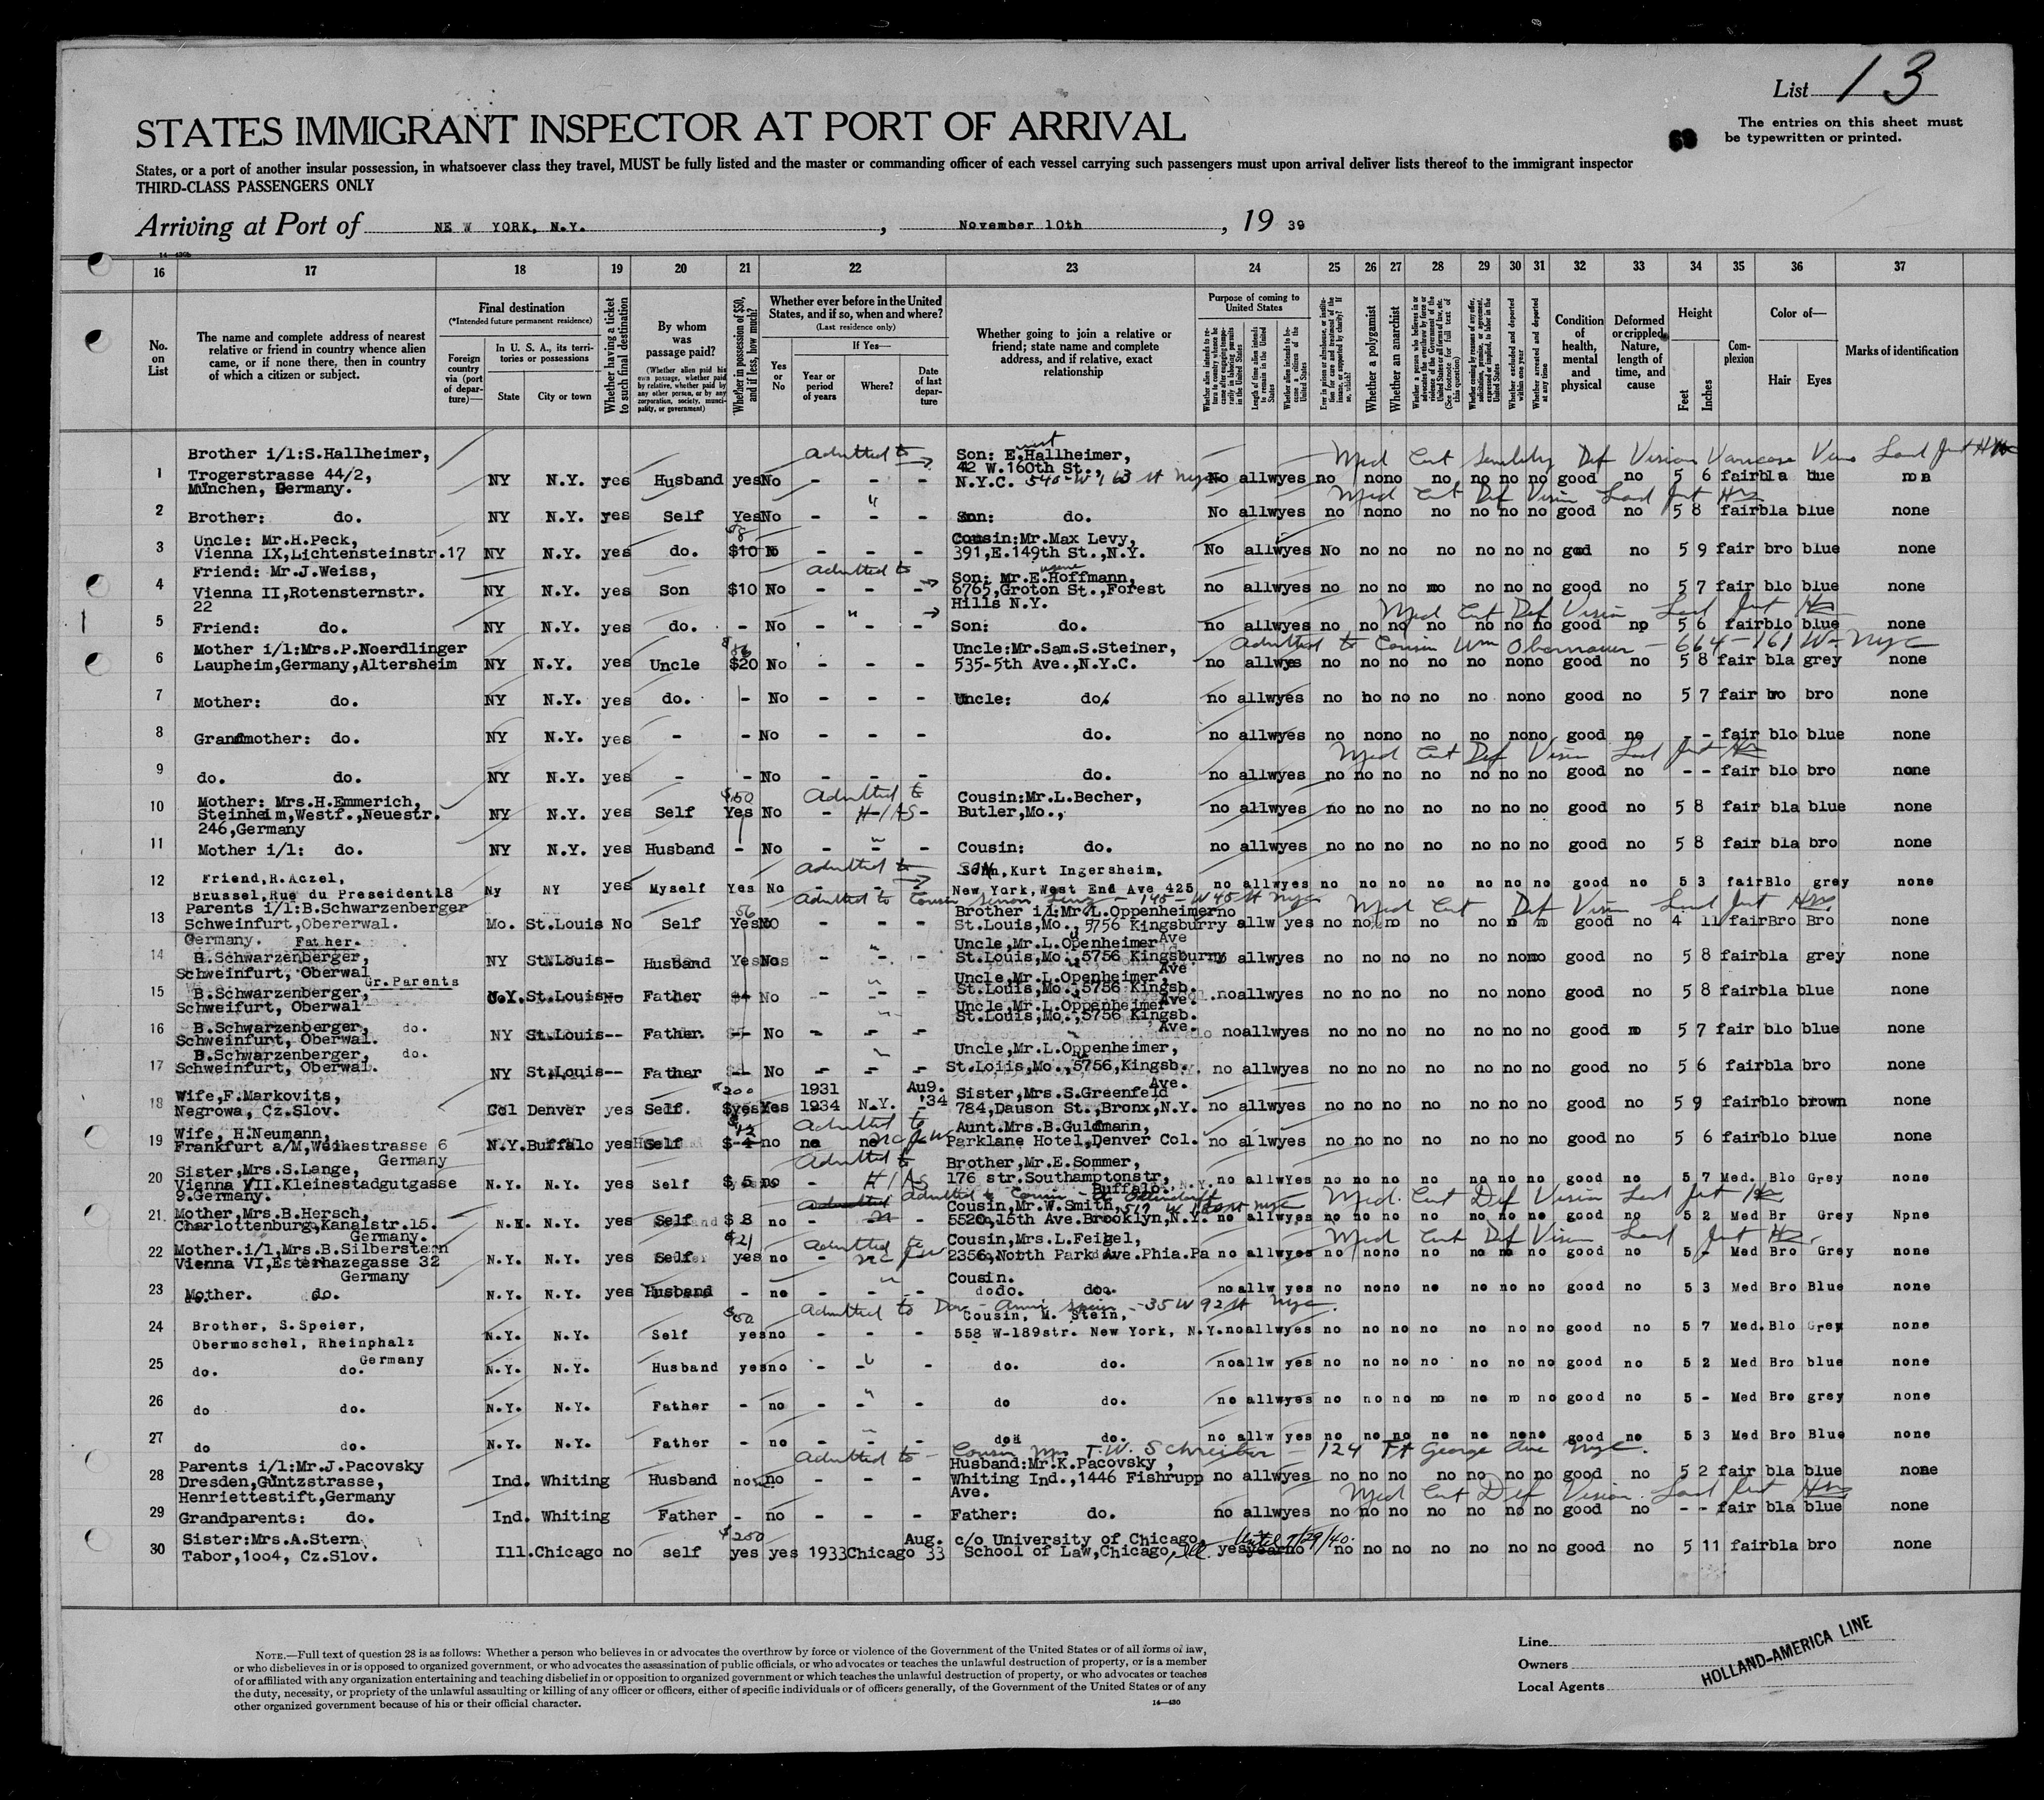 List 13
STATES IMMIGRANT INSPECTOR AT PORT OF ARRIVAL
The entries on this sheet must
be typewritten or printed.
States, or a port of another insular possession, in whatsoever class they travel, MUST be fully listed and the master or commanding officer of each vessel carrying such passengers must upon arrival deliver lists thereof to the immigrant inspector
THIRD-CLASS PASSENGERS ONLY
Arriving at Port of NE W YORK, N.Y. , November 10th , 19 39
16 17 18 19 20 21 22 23 24 25 26 27 28 29 30 31 32 33 34 35 36 37
No. on List
The name and complete address of nearest relative or friend in country whence alien came, or if none there, then in country of which a citizen or subject.
Final destination
(*Intended future permanent residence)
Foreign country via (port of departure)—
In U. S. A., its territories or possessions
State
City or town
Whether having a ticket to such final destination
By whom was passage paid?
(Whether alien paid his own passage, whether paid by relative, whether paid by any other person, or by any corporation, society, municipality, or government)
Whether in possession of $50, and if less, how much?
Whether ever before in the United States, and if so, when and where?
(Last residence only)
If Yes—
Yes or No
Year or period of years
Where?
Date of last departure
Whether going to join a relative or friend; state name and complete address, and if relative, exact relationship
Purpose of coming to United States
Length of time alien intends to remain in the United States
Whether alien intends to become a citizen of the United States
Whether a polygamist
Whether an anarchist
Whether excluded and deported within one year
Whether arrested and deported at any time
Condition of health, mental and physical
Deformed or crippled. Nature, length of time, and cause
Height
Feet
Inches
Complexion
Color of—
Hair
Eyes
Marks of identification
1 Brother i/l:S.Hallheimer,
Trogerstrasse 44/2,
München, Germany. NY N.Y. yes Husband yes No - - - Son: E.Hallheimer,
42 W.160th St.,
N.Y.C. No allw yes no no no no no no no good no 5 6 fair bla blue
Admitted to
Med Cert Senility Def Vision Varicose Veins
2 Brother: do. NY N.Y. yes Self Yes No - - - Son: do. No allw yes no no no no no no no good no 5 8 fair bla blue none
Med Cert Def Vision
3 Uncle: Mr.H.Peck,
Vienna IX,Lichtensteinstr.17 NY N.Y. yes do. $10 - - - Cousin:Mr.Max Levy,
391,E.149th St.,N.Y. No allw yes No no no no no no no good no 5 9 fair bro blue none
4 Friend: Mr.J.Weiss,
Vienna II,Rotensternstr.
22 NY N.Y. yes Son $10 No - - - Son: Mr.E.Hoffmann,
6765,Groton St.,Forest
Hills N.Y. no allw yes no no no no no no no good no 5 7 fair blo blue none
Admitted to
5 Friend: do. NY N.Y. yes do. - No - - - Son: do. no allw yes no no no no no no no good no 5 6 fair blo blue none
Med Cert Def Vision
6 Mother i/l:Mrs.P.Noerdlinger
Laupheim,Germany,Altersheim NY N.Y. yes Uncle $20 No - - - Uncle:Mr.Sam.S.Steiner,
535-5th Ave.,N.Y.C. no allw yes no no no no no no no good no 5 8 fair bla grey none
Admitted to Cousin Wm Obernauer - 664-161 W- Nyc
7 Mother: do. NY N.Y. yes do. - No - - - Uncle: do. no allw yes no no no no no no no good no 5 7 fair bro bro none
8 Grandmother: do. NY N.Y. yes - - No - - - do. no allw yes no no no no no no no good no - - fair blo blue none
Med Cert Def Vision
9 do. do. NY N.Y. yes - - No - - - do. no allw yes no no no no no no no good no - - fair blo bro none
10 Mother: Mrs.H.Emmerich,
Steinheim,Westf.,Neuestr.
246,Germany NY N.Y. yes Self Yes No - - Cousin:Mr.L.Becher,
Butler,Mo., no allw yes no no no no no no no good no 5 8 fair bla blue none
Admitted to HIAS
11 Mother i/l: do. NY N.Y. yes Husband - No - - - Cousin: do. no allw yes no no no no no no no good no 5 8 fair bla bro none
12 Friend,R.Aczel,
Brussel,Rue du Preseident18 Ny NY yes Myself Yes No - - - Kurt Ingersheim,
New York,West End Ave 425 no allw yes no no no no no no no good no 5 3 fair Blo grey none
Admitted to
Admitted to Cousin - 145-W 45 St Nyc
13 Parents i/l:B.Schwarzenberger
Schweinfurt,Obererwal.
Germany. Mo. St.Louis No Self Yes No - - - Brother i/l:Mr.L.Oppenheimer
St.Louis,Mo.,5756 Kingsburry
Ave no allw yes no no no no no n no good no 4 11 fair Bro Bro none
Med Cert Def Vision
14 Father.
B.Schwarzenberger,
Schweinfurt, Oberwal NY St.Louis- Husband Yes No - - - Uncle,Mr.L.Openheimer
St.Louis,Mo.,5756 Kingsburry
Ave. allw yes no no no no no no no good no 5 8 fair bla grey none
15 Gr.Parents
B.Schwarzenberger,
Schweifurt, Oberwal N.Y. St.Louis No Father No - - - Uncle,Mr.L.Openheimer,
St.Louis,Mo.,5756 Kingsb.
Ave. no allw yes no no no no no no no good no 5 8 fair bla blue none
16 B.Schwarzenberger, do.
Schweinfurt, Oberwal. NY St.Louis-- Father. No - - - Uncle,Mr.L.Oppenheimer
St.Louis,Mo.,5756 Kingsb.
Ave. no allw yes no no no no no no no good no 5 7 fair blo blue none
17 B.Schwarzenberger, do.
Schweinfurt, Oberwal. NY St.Louis-- Father No - - - Uncle,Mr.L.Oppenheimer,
St.Loiis,Mo.,5756,Kingsb.
Ave. no allw yes no no no no no no no good no 5 6 fair bla bro none
18 Wife,F.Markovits,
Negrowa, Cz.Slov. Col Denver yes Self. $200 yes Yes 1931
1934 N.Y. Aug.
'34 Sister,Mrs.S.Greenfeld
784,Dauson St.,Bronx,N.Y. no allw yes no no no no no no no good no 5 9 fair blo brown none
19 Wife, H.Neumann,
Frankfurt a/M,Weihestrasse 6
Germany N.Y. Buffalo yes Self no no no Aunt.Mrs.B.Guldmann,
Parklane Hotel,Denver Col. no allw yes no no no no no no no good no 5 6 fair blo blue none
Admitted to
20 Sister,Mrs.S.Lange,
Vienna VII.Kleinestadgutgasse
9.Germany. N.Y. N.Y. yes Self $ 5 no - Brother,Mr.E.Sommer,
176 str.Southamptonstr,
Buffalo. no allw yes no no no no no no no good no 5 7 Med. Blo Grey none
Admitted to HIAS
21. Mother,Mrs.B.Hersch,
Charlottenburg,Kanalstr.15.
Germany. N.Y. N.Y. yes Self $ 8 no - Cousin,Mr.W.Smith,
5520,15th Ave.Brooklyn,N.Y. no allw yes no no no no no no no good no 5 2 Med Br Grey Npne
Med. Cert Def Vision
22 Mother.i/l,Mrs.B.Silberstern
Vienna VI,Esterhazegasse 32
Germany N.Y. N.Y. yes Self $21 yes no - Cousin,Mrs.L.Feigel,
2356,North Park Ave.Phia.Pa no allw yes no no no no no no no good no 5 - Med Bro Grey none
Admitted to
Med Cert Def Vision
23 Mother. do. N.Y. N.Y. yes Husband - no - - - Cousin.
do. do. no allw yes no no no no no no no good no 5 3 Med Bro Blue none
24 Brother, S.Speier,
Obermoschel, Rheinphalz
Germany N.Y. N.Y. Self yes no - - - Cousin, M. Stein,
558 W-189str. New York, N.Y. no allw yes no no no no no no no good no 5 7 Med. Blo Grey none
Admitted to - 35 W 92 St Nyc.
25 do. do. N.Y. N.Y. Husband yes no - - - do. do. no allw yes no no no no no no no good no 5 2 Med Bro blue none
26 do do. N.Y. N.Y. Father - no - - - do do. no allw yes no no no no no no no good no 5 - Med Bro grey none
27 do do. N.Y. N.Y. Father - no - - - do do. no allw yes no no no no no no no good no 5 3 Med Bro Blue none
Admitted to - Cousin Mrs T.W. Schreiber - 124 Ft George Ave Nyc.
28 Parents i/l:Mr.J.Pacovsky
Dresden,Güntzstrasse,
Henriettestift,Germany Ind. Whiting Husband no no - - - Husband:Mr.K.Pacovsky ,
Whiting Ind.,1446 Fishrupp
Ave. no allw yes no no no no no no no good no 5 2 fair bla blue none
Med Cert Def Vision.
29 Grandparents: do. Ind. Whiting Father - no - - - Father: do. no allw yes no no no no no no no good no - - fair bla blue none
30 Sister:Mrs.A.Stern
Tabor,1oo4, Cz.Slov. Ill. Chicago no self $250 yes yes 1933 Chicago Aug.
33 c/o University of Chicago
School of Law,Chicago, Ill. yes no no no no no no no no good no 5 11 fair bla bro none
NOTE.—Full text of question 28 is as follows: Whether a person who believes in or advocates the overthrow by force or violence of the Government of the United States or of all forms of law,
or who disbelieves in or is opposed to organized government, or who advocates the assassination of public officials, or who advocates or teaches the unlawful destruction of property, or is a member
of or affiliated with any organization entertaining and teaching disbelief in or opposition to organized government or which teaches the unlawful destruction of property, or who advocates or teaches
the duty, necessity, or propriety of the unlawful assaulting or killing of any officer or officers, either of specific individuals or of officers generally, of the Government of the United States or of any
other organized government because of his or their official character.
14—430
Line
Owners
Local Agents
HOLLAND-AMERICA LINE